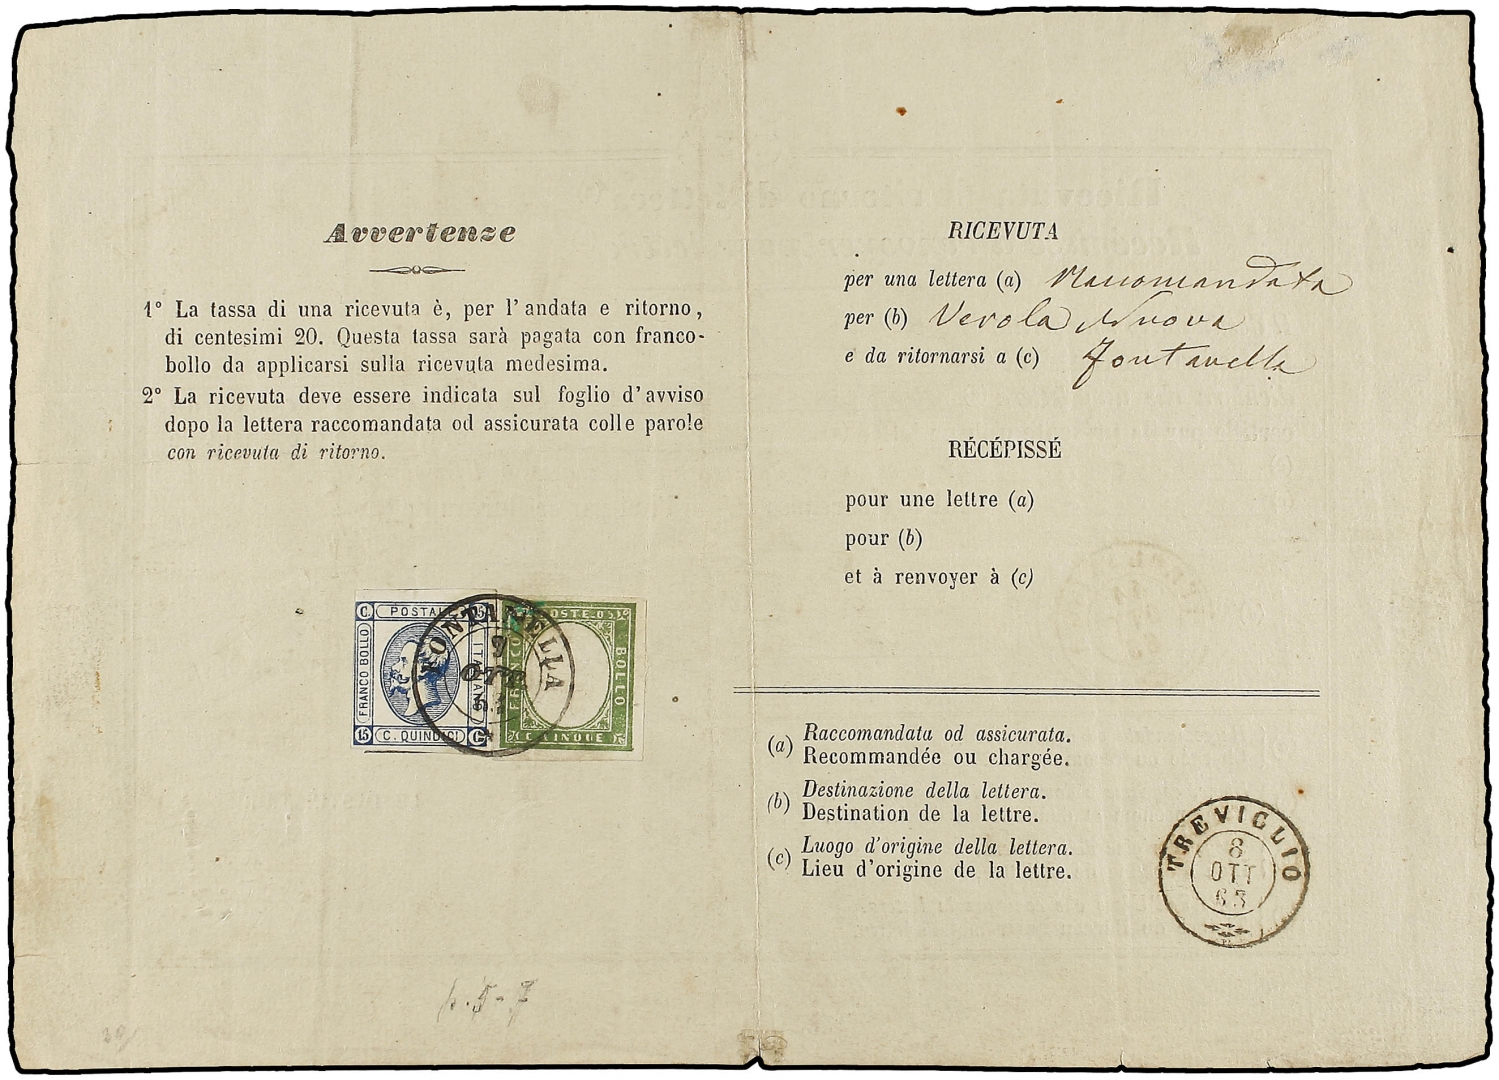 Avvertenze
1° La tassa di una ricevuta è, per l'andata e ritorno,
di centesimi 20. Questa tassa sarà pagata con franco-
bollo da applicarsi sulla ricevuta medesima.
2° La ricevuta deve essere indicata sul foglio d'avviso
dopo la lettera raccomandata od assicurata colle parole
con ricevuta di ritorno.
C. POSTALE 15
FRANCO BOLLO
ITALIANO
15 C. QUINDICI C.
POSTE
FRANCO
BOLLO
C. CINQUE
FONTANELLA
OTT
63
RICEVUTA
per una lettera (a) Raccomandata
per (b) Verola Nuova
e da ritornarsi a (c) Fontanella
RÉCÉPISSÉ
pour une lettre (a)
pour (b)
et à renvoyer à (c)
(a) Raccomandata od assicurata.
Recommandée ou chargée.
(b) Destinazione della lettera.
Destination de la lettre.
(c) Luogo d'origine della lettera.
Lieu d'origine de la lettre.
TREVIGLIO
8
OTT
63